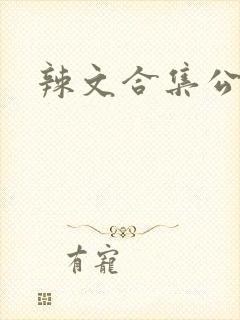 辣文合集公
有寵